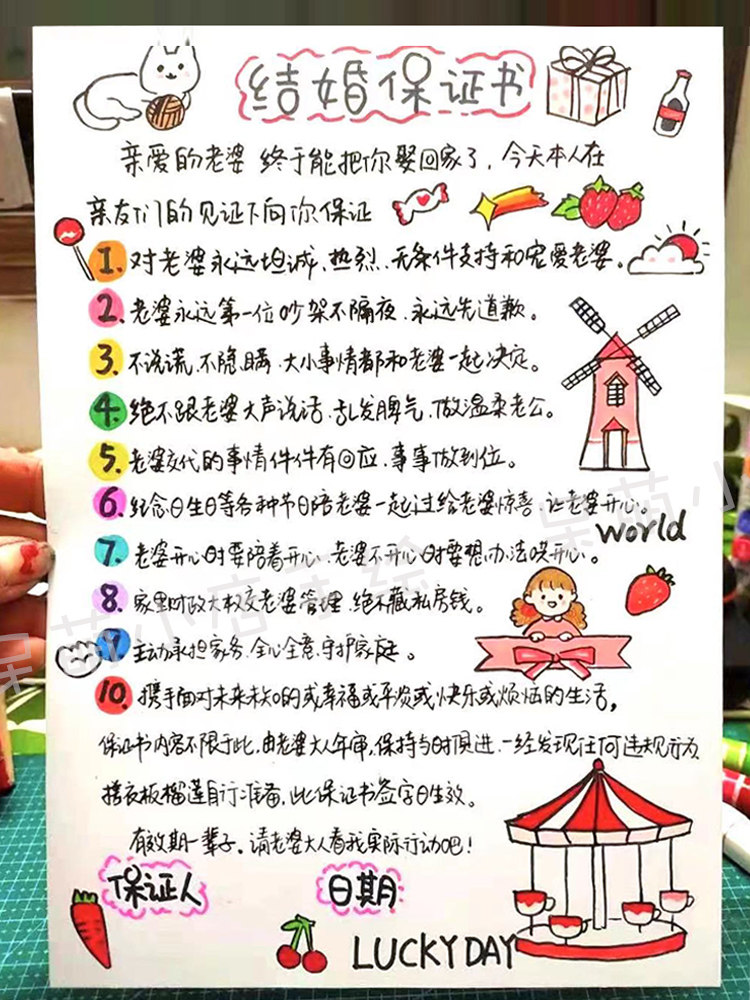 结婚保证书
亲爱的老婆 终于能把你娶回家了，今天本人在
亲友们的见证下向你保证
1.对老婆永远坦诚、热烈、无条件支持和宠爱老婆。
2.老婆永远第一位吵架不隔夜、永远先道歉。
3.不说谎、不隐瞒、大小事情都和老婆一起决定。
4.绝不跟老婆大声说话、乱发脾气、做温柔老公。
5.老婆交代的事情件件有回应、事事做到位。
6.纪念日生日等各种节日陪老婆一起过给老婆惊喜、让老婆开心。
world
7.老婆开心时要陪着开心、老婆不开心时要想办法哄开心。
8.家里财政大权交老婆管理、绝不藏私房钱。
9.主动承担家务、全心全意守护家庭。
10.携手面对未来未知的或幸福或平淡或快乐或烦恼的生活，
保证书内容不限于此，由老婆大人年审，保持与时俱进、一经发现任何违规行为
搓衣板榴莲自行准备，此保证书签字日生效。
有效期一辈子。请老婆大人看我实际行动吧！
保证人 日期
LUCKY DAY
呆萌小店手绘
呆萌小